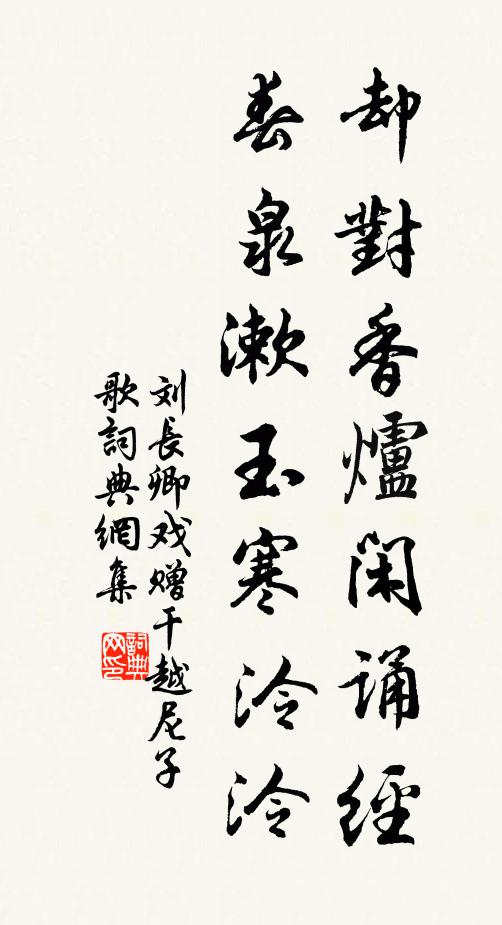 却對香爐閑誦經
春泉漱玉寒泠泠
刘長卿戏赠干越尼子
歌詞典網集
詞典网印